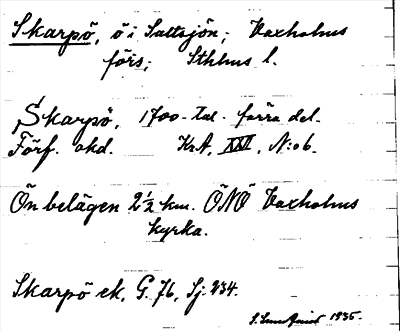 Skarpö, ö i Saltsjön; Vaxholms
förs; Sthlms l.
Skarpö, 1700-tal. förra del.
Förf. okd. Kr.A, XXI, N:o 6.
Ön belägen 2½ km. ÖNÖ Vaxholms
kyrka.
Skarpö ek, G. 76, Sj: 234.
1935.